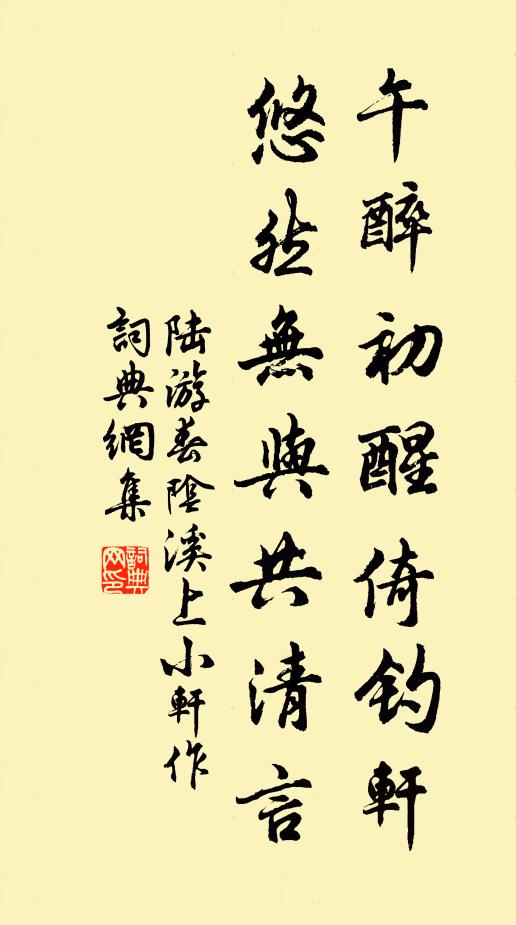 午醉初醒倚釣軒
悠然無與共清言
陸游春陰溪上小軒作
詞典網集
詞典网印